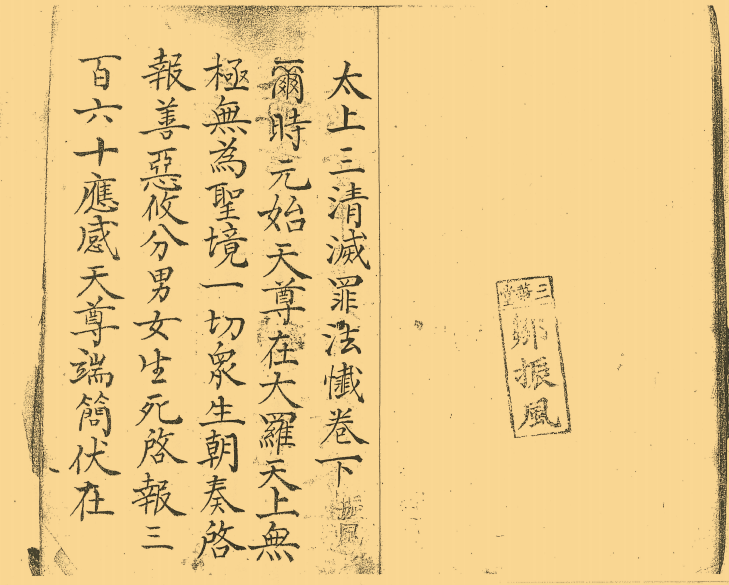 三槐堂
鄒振風
太上三清滅罪法懺卷下
振風
爾時元始天尊在大羅天上無
極無為聖境一切衆生朝奏啓
報善惡攸分男女生死啓報三
百六十應感天尊端簡伏在